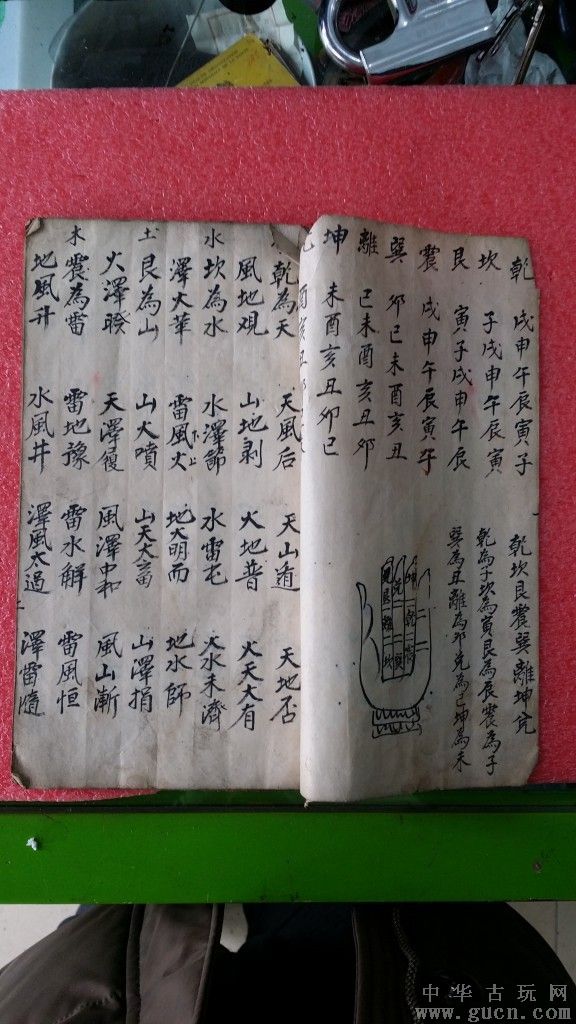 乾 戌申午辰寅子 乾坎艮震巽離坤兌
坎 子戌申午辰寅 乾為子坎為寅艮為辰震為子
艮 寅子戌申午辰 巽為丑離為卯兌為巳坤為未
震 戌申午辰寅午
巽 卯巳未酉亥丑
離 巳未酉亥丑卯
坤 未酉亥丑卯巳
酉亥丑
乾為天 天風后 天山遁 天地否
風地观 山地剥 火地普 火天大有
水 坎為水 水澤節 水雷屯 火水未濟
澤火華 雷風火 下 上 地火明而 地水師
土 艮為山 山火噴 山天大畜 山澤損
火澤睽 天澤履 風澤中和 風山漸
木 震為雷 雷地豫 雷水解 雷風恒
地風升 水風井 澤風太過 澤雷隨
中华古玩网
www.gucn.com